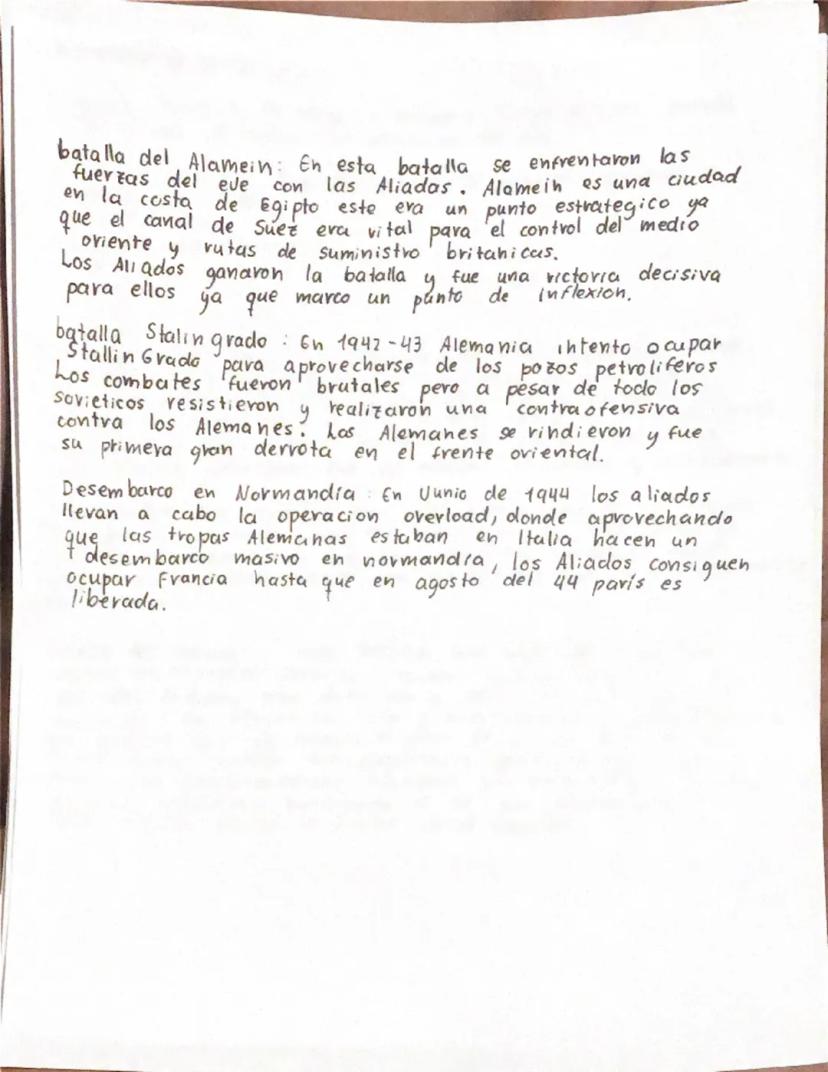 batalla del Alamein: En esta batalla se enfrentaron las
fuerzas del eje con las Aliadas. Alamein es una ciudad
en la costa de Egipto este era un punto estrategico ya
que el canal de Suez era vital para el control del medio
oriente y rutas de suministro britanicas.
Los Aliados ganaron la batalla y fue una victoria decisiva
para ellos ya que marco un punto de inflexion.
batalla Stalingrado : En 1942-43 Alemania intento ocupar
Stallin Grado para aprovecharse de los pozos petroliferos
Los combates fueron brutales pero a pesar de todo los
sovieticos resistieron y realizaron una contraofensiva
contra los Alemanes. Los Alemanes se rindieron y fue
su primera gran derrota en el frente oriental.
Desembarco en Normandía : En Junio de 1944 los aliados
llevan a cabo la operacion overload, donde aprovechando
que las tropas Alemanas estaban en Italia hacen un
desembarco masivo en normandía, los Aliados consiguen
ocupar Francia hasta que en agosto del 44 parís es
liberada.